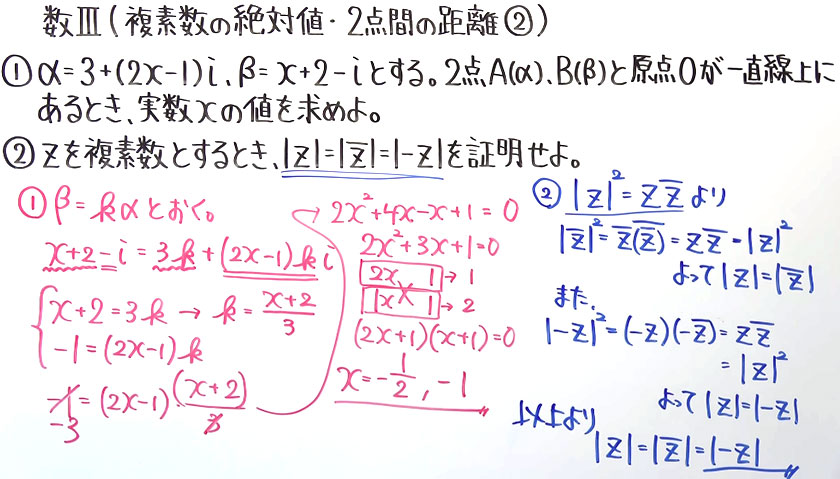 数Ⅲ(複素数の絶対値・2点間の距離②)
①α=3+(2x-1)i、β=x+2-iとする。2点A(α)、B(β)と原点Oが一直線上に
あるとき、実数xの値を求めよ。
②zを複素数とするとき、|z|=|z̅|=|-z|を証明せよ。
①β=kαとおく。
x+2-i=3k+(2x-1)ki
x+2=3k→k=x+2/3
-1=(2x-1)k
-1=(2x-1)(x+2)/3
-3
2x²+4x-x-2+3=0
2x²+3x+1=0
2x 1→1
1x 1→2
(2x+1)(x+1)=0
x=-1/2,-1
②|z|²=zz̅より
|z̅|²=z̅(z̅)̅=zz̅=|z|²
よって|z|=|z̅|
また、
|-z|²=(-z)(-z̅)=zz̅
=|z|²
よって|z|=|-z|
以上より
|z|=|z̅|=|-z|